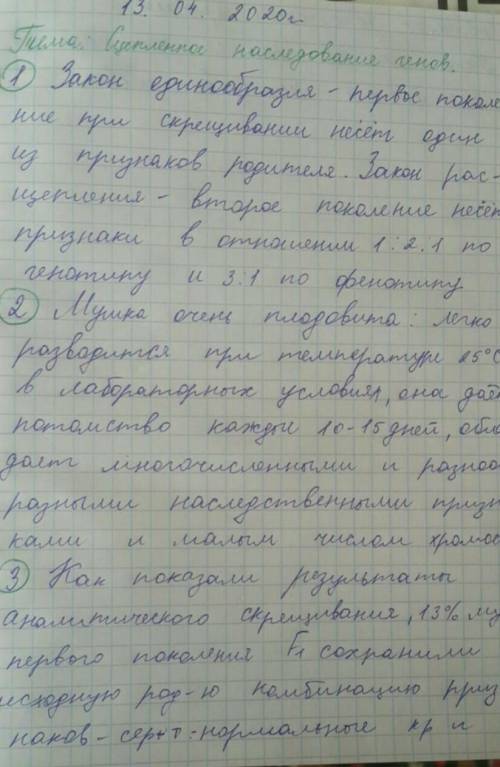 13. 04. 2020г
Тема: Сцепленное наследование генов.
1 Закон единообразия - первое поколе
ние при скрещивании несёт один
из признаков родителя. Закон рас-
щепления - второе поколение несёт
признаки в отношении 1:2.1 по
генотипу и 3:1 по фенотипу
2 Мушка очень плодовита: легко
разводится при температуре 25°C
в лабораторных условиях, она даёт
потомство каждые 10-15 дней, обла
дает многочисленными и разнооб
разными наследственными призн
ками и малым числом хромос
3 Как показали результаты
аналитического скрещивания, 13% му
первого поколения F1 сохранили
исходную род-ю комбинацию приз
наков - сер+т - нормальные кр и